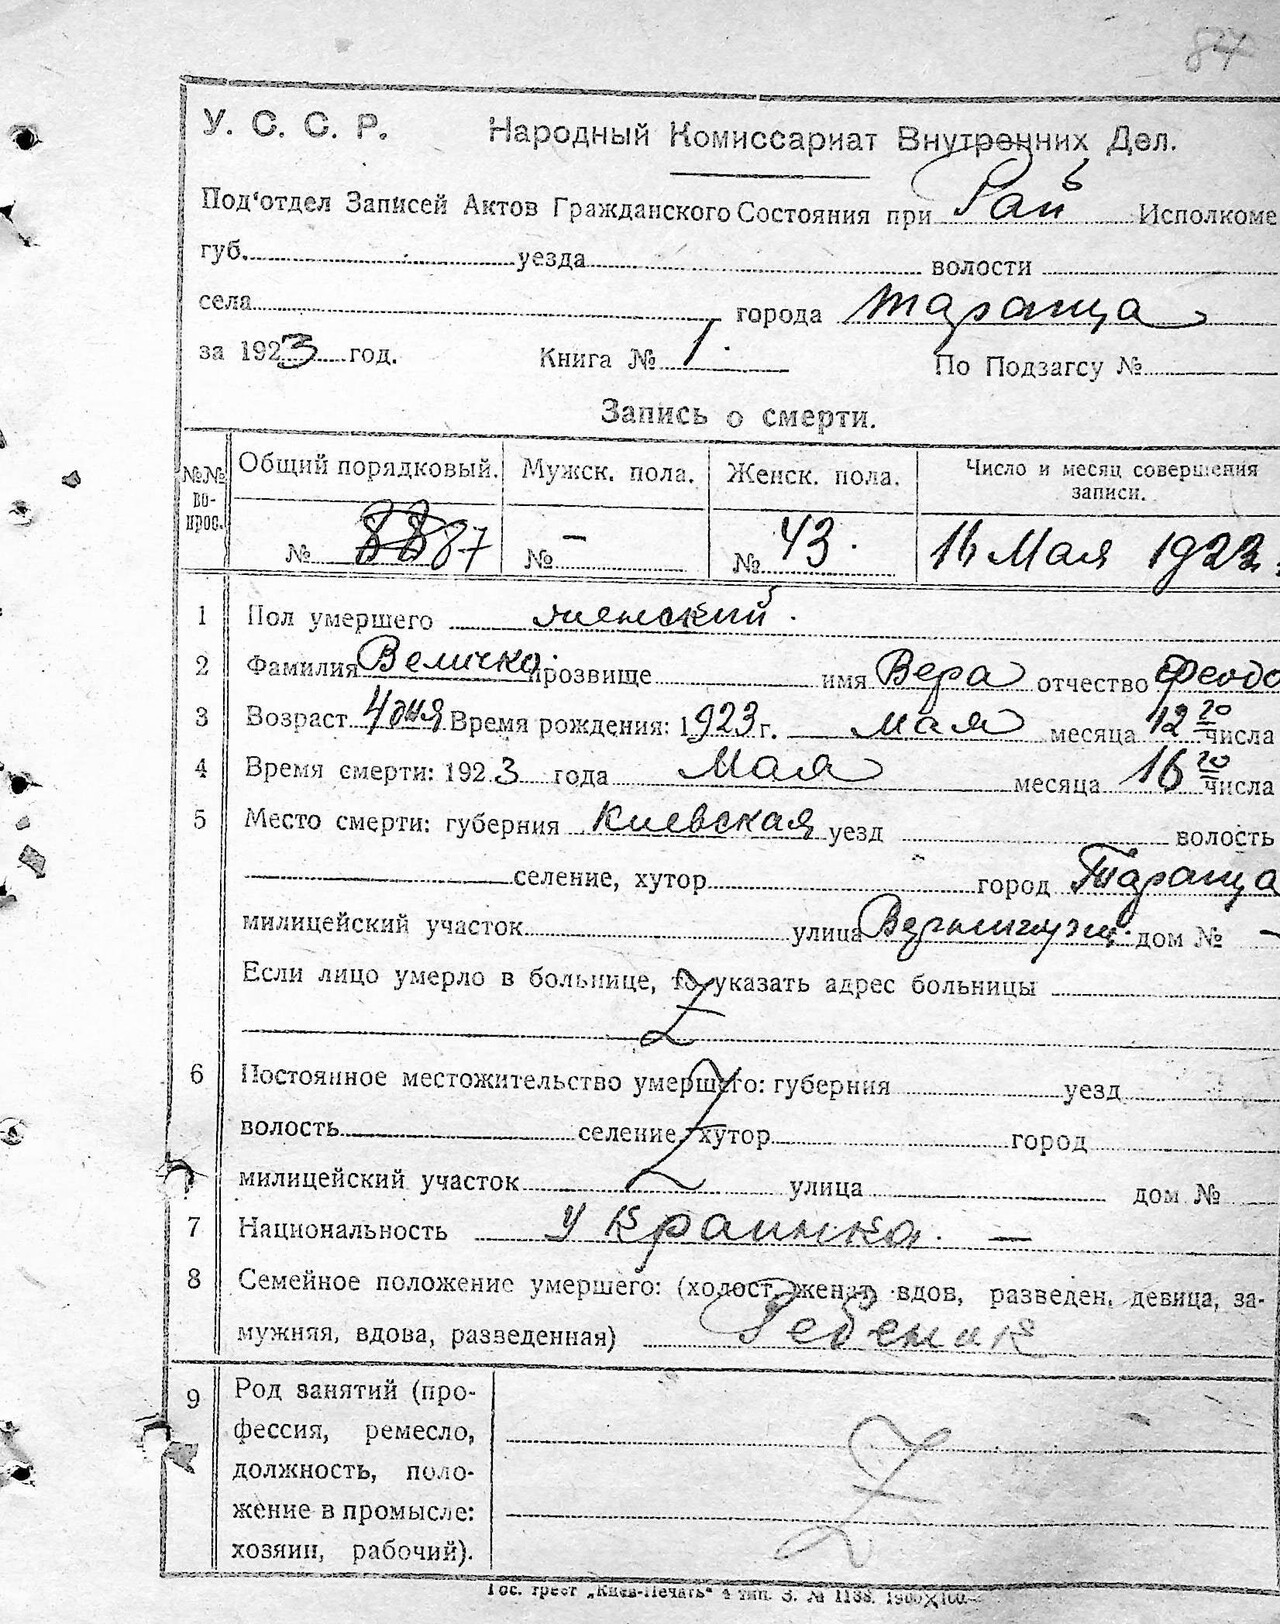 84
У. С. С. Р. Народный Комиссариат Внутренних Дел.
Под'отдел Записей Актов Гражданского Состояния при Рай Исполкоме
губ. уезда волости
села города Тараща
за 1923 год. Книга № 1. По Подзагсу №
Запись о смерти.
№№ вопрос. Общий порядковый. Мужск. пола. Женск. пола. Число и месяц совершения записи.
№ 87 № – № 43. 16 Мая 1923
1 Пол умершего женский.
2 Фамилия Величко прозвище имя Вера отчество Феодо
3 Возраст 4 дня Время рождения: 1923 г. мая месяца 12 го числа
4 Время смерти: 1923 года Мая месяца 16 го числа
5 Место смерти: губерния Киевская уезд волость
селение, хутор город Тараща
милицейский участок улица дом № –
Если лицо умерло в больнице, то указать адрес больницы
Z
6 Постоянное местожительство умершего: губерния уезд
волость селение, хутор город
милицейский участок улица дом №
7 Национальность Украинка. —
8 Семейное положение умершего: (холост, женат, вдов, разведен, девица, за-
мужняя, вдова, разведенная) Ребенок
9 Род занятий (про-
фессия, ремесло,
должность, поло-
жение в промысле:
хозяин, рабочий).
Гос. трест „Киев-Печать" 4 тип. З. № 1138.